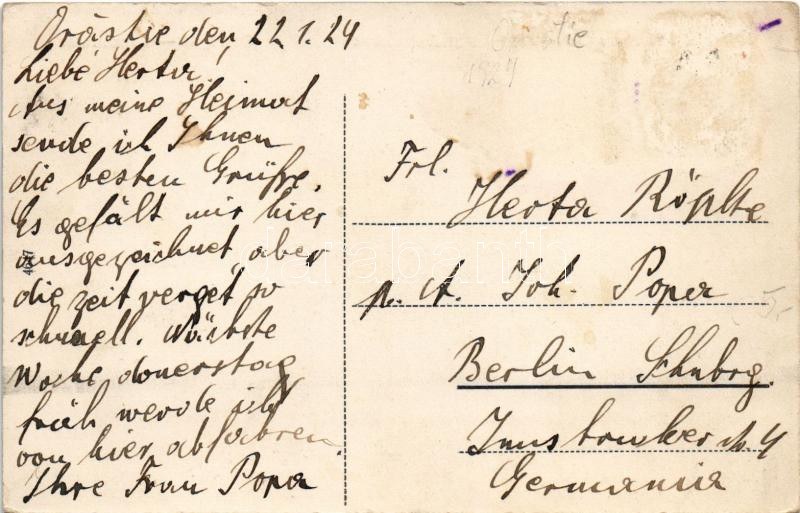 Orăstie den 22.1.24
Liebe Herta!
Aus meine Heimat
sende ich Ihnen
die besten Grüße.
Es gefält mir hier
ausgezeichnet, aber
die zeit verget so
schnell. Nächste
Woche donerstag
früh werde ich
von hier abfahren.
Ihre Frau Popa
4047
Orăstie
1924
Frl.
Herta Röplke
p. A. Joh. Popa
Berlin Schnbrg.
Innsbrucker 4
Germania
5,-
Darabanth